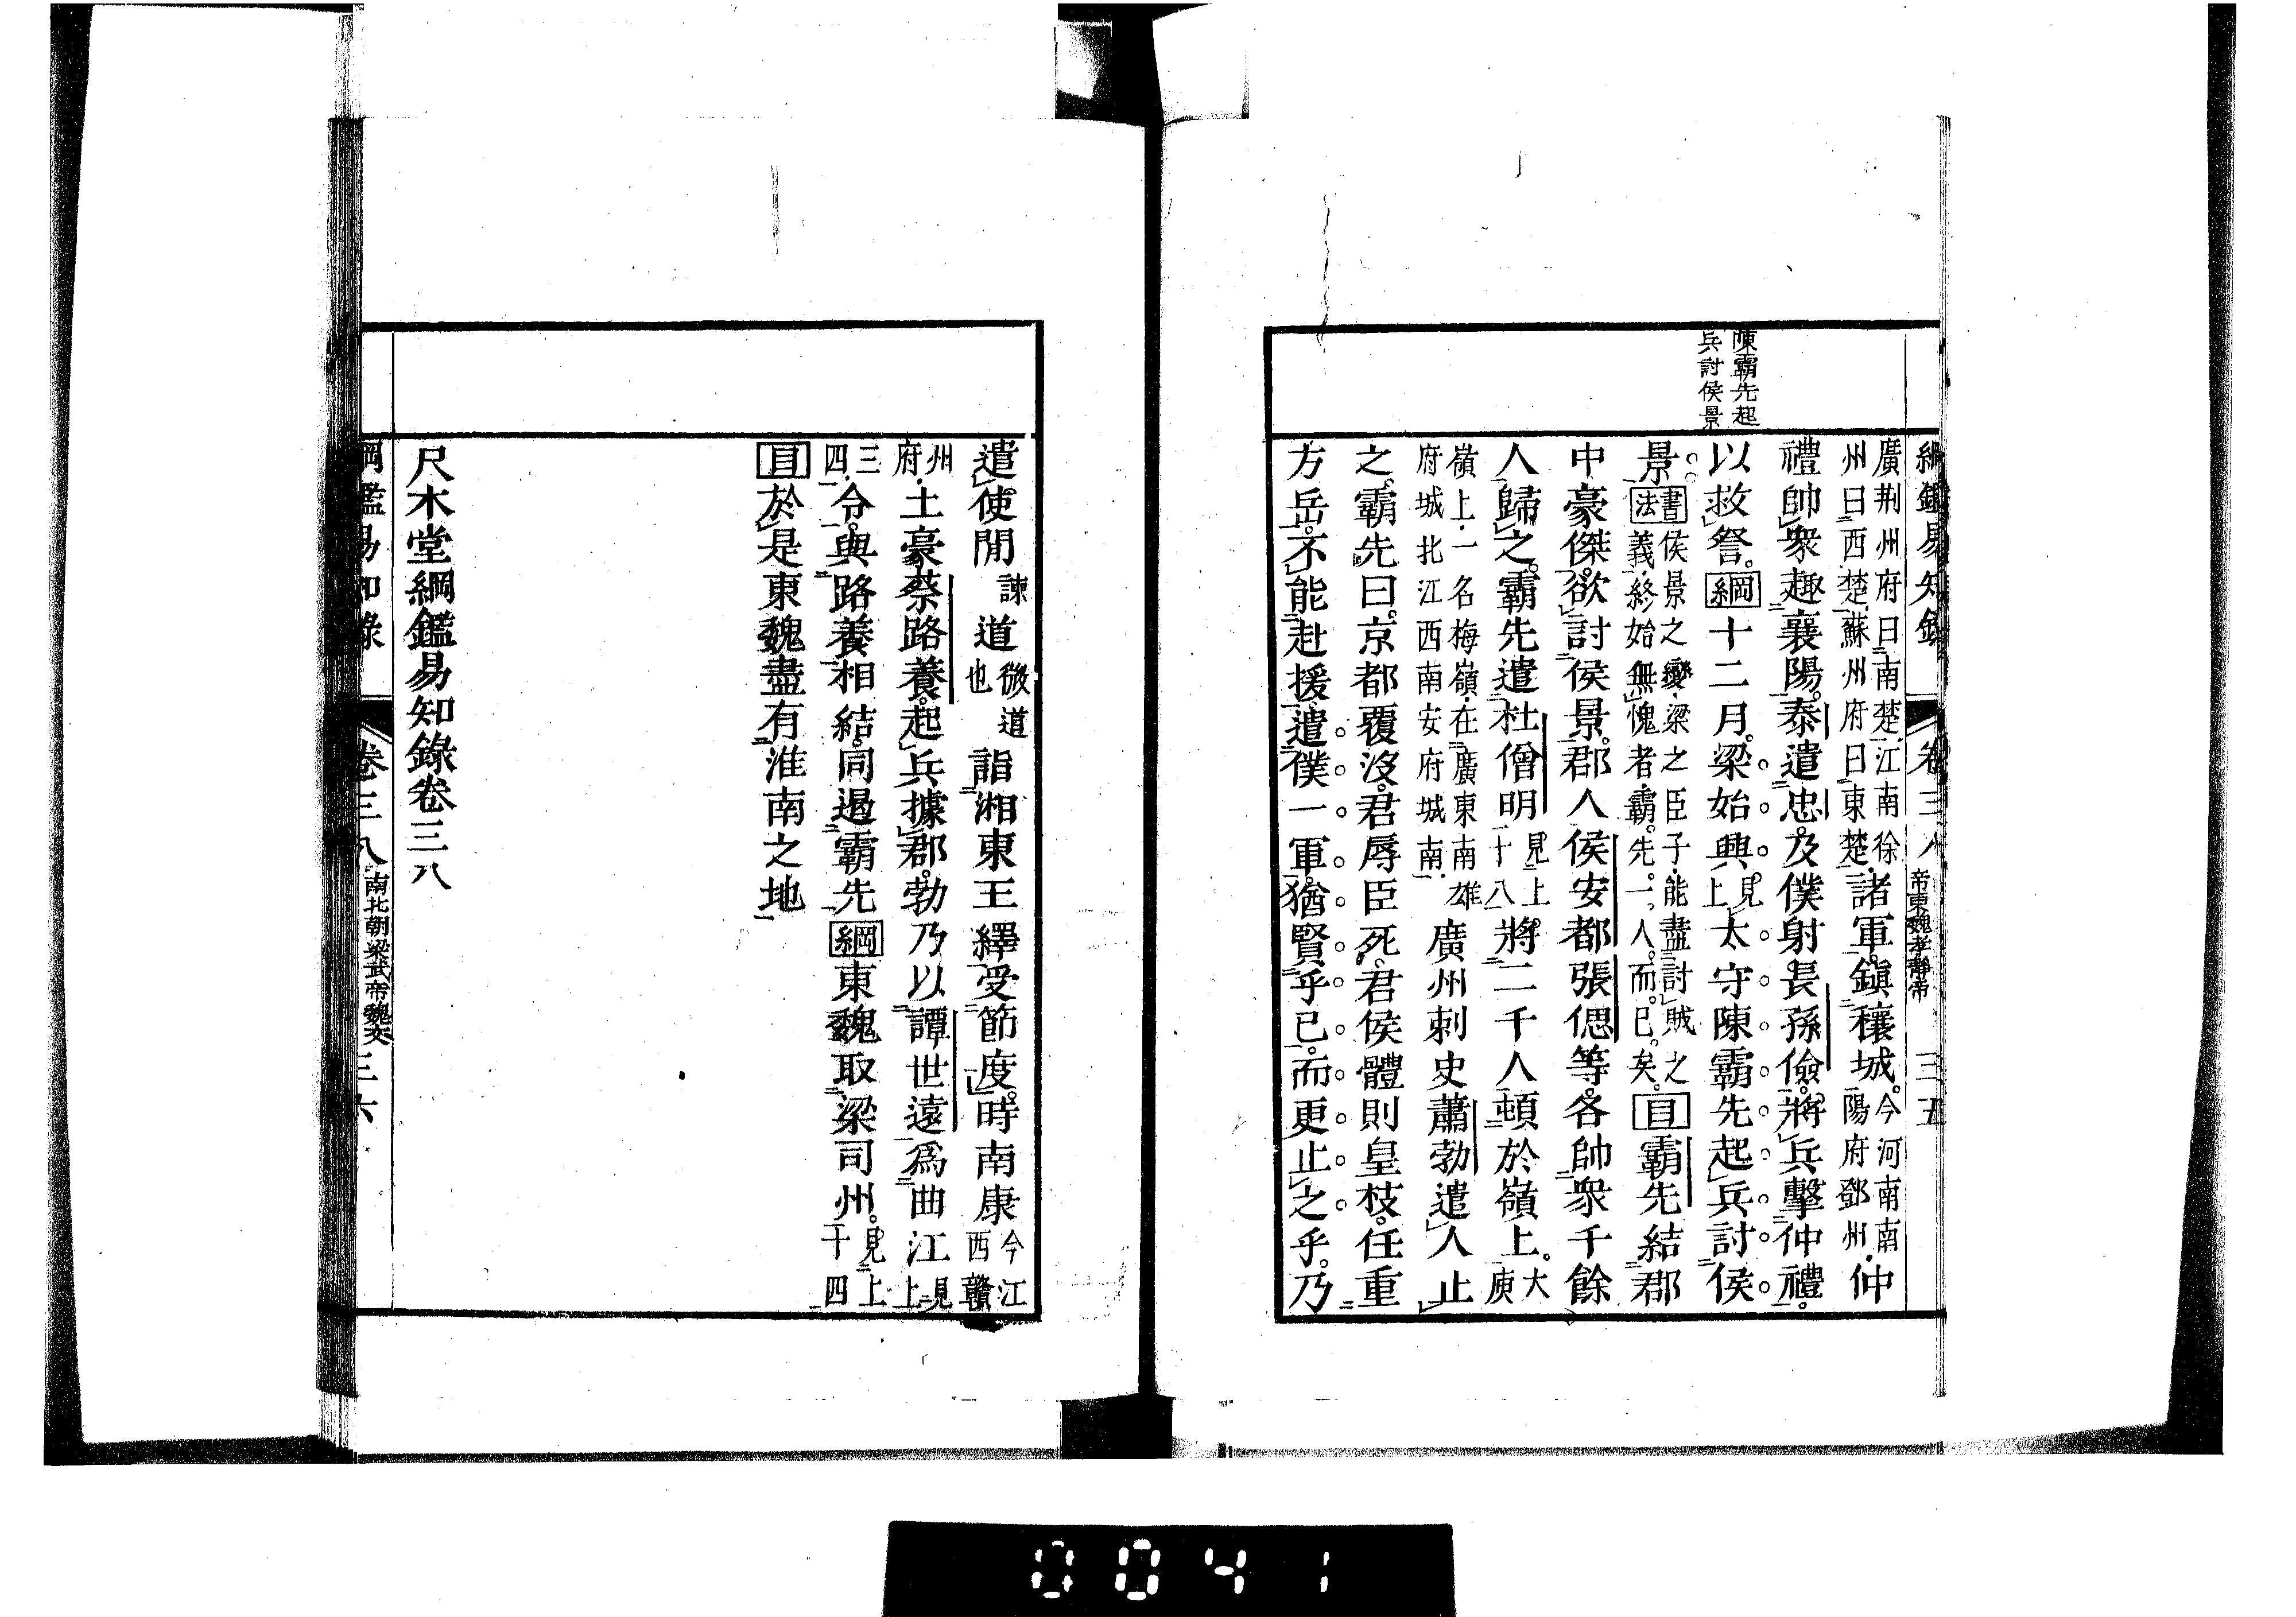 綱鑑易知錄 卷三八 帝東魏孝靜帝 三五
陳霸先起
兵討侯景
廣荆州府曰南楚江南徐州曰西楚蘇州府曰東楚諸軍鎮穰城今河南南陽府鄧州仲
禮帥衆趣襄陽泰遣忠及僕射長孫儉將兵擊仲禮
以救詧綱十二月梁始興見上太守陳霸先起兵討侯
景書法侯景之變梁之臣子能盡討賊之義終始無愧者霸先一人而已矣目霸先結郡
中豪傑欲討侯景郡人侯安都張偲等各帥衆千餘
人歸之霸先遣杜僧明見上十八將二千人頓於嶺上大庾
嶺上一名梅嶺在廣東南雄府城北江西南安府城南廣州刺史蕭勃遣人止
之霸先曰京都覆沒君辱臣死君侯體則皇枝任重
方岳不能赴援遣僕一軍猶賢乎已而更止之乎乃
遣使閒諫道微道也詣湘東王繹受節度時南康今江西贛
州府土豪蔡路養起兵據郡勃乃以譚世遠爲曲江見上
三四令與路養相結同遏霸先綱東魏取梁司州見上十四
目於是東魏盡有淮南之地
尺木堂綱鑑易知錄卷三八
綱鑑易知錄 卷三八 南北朝梁武帝魏文 三六
0041